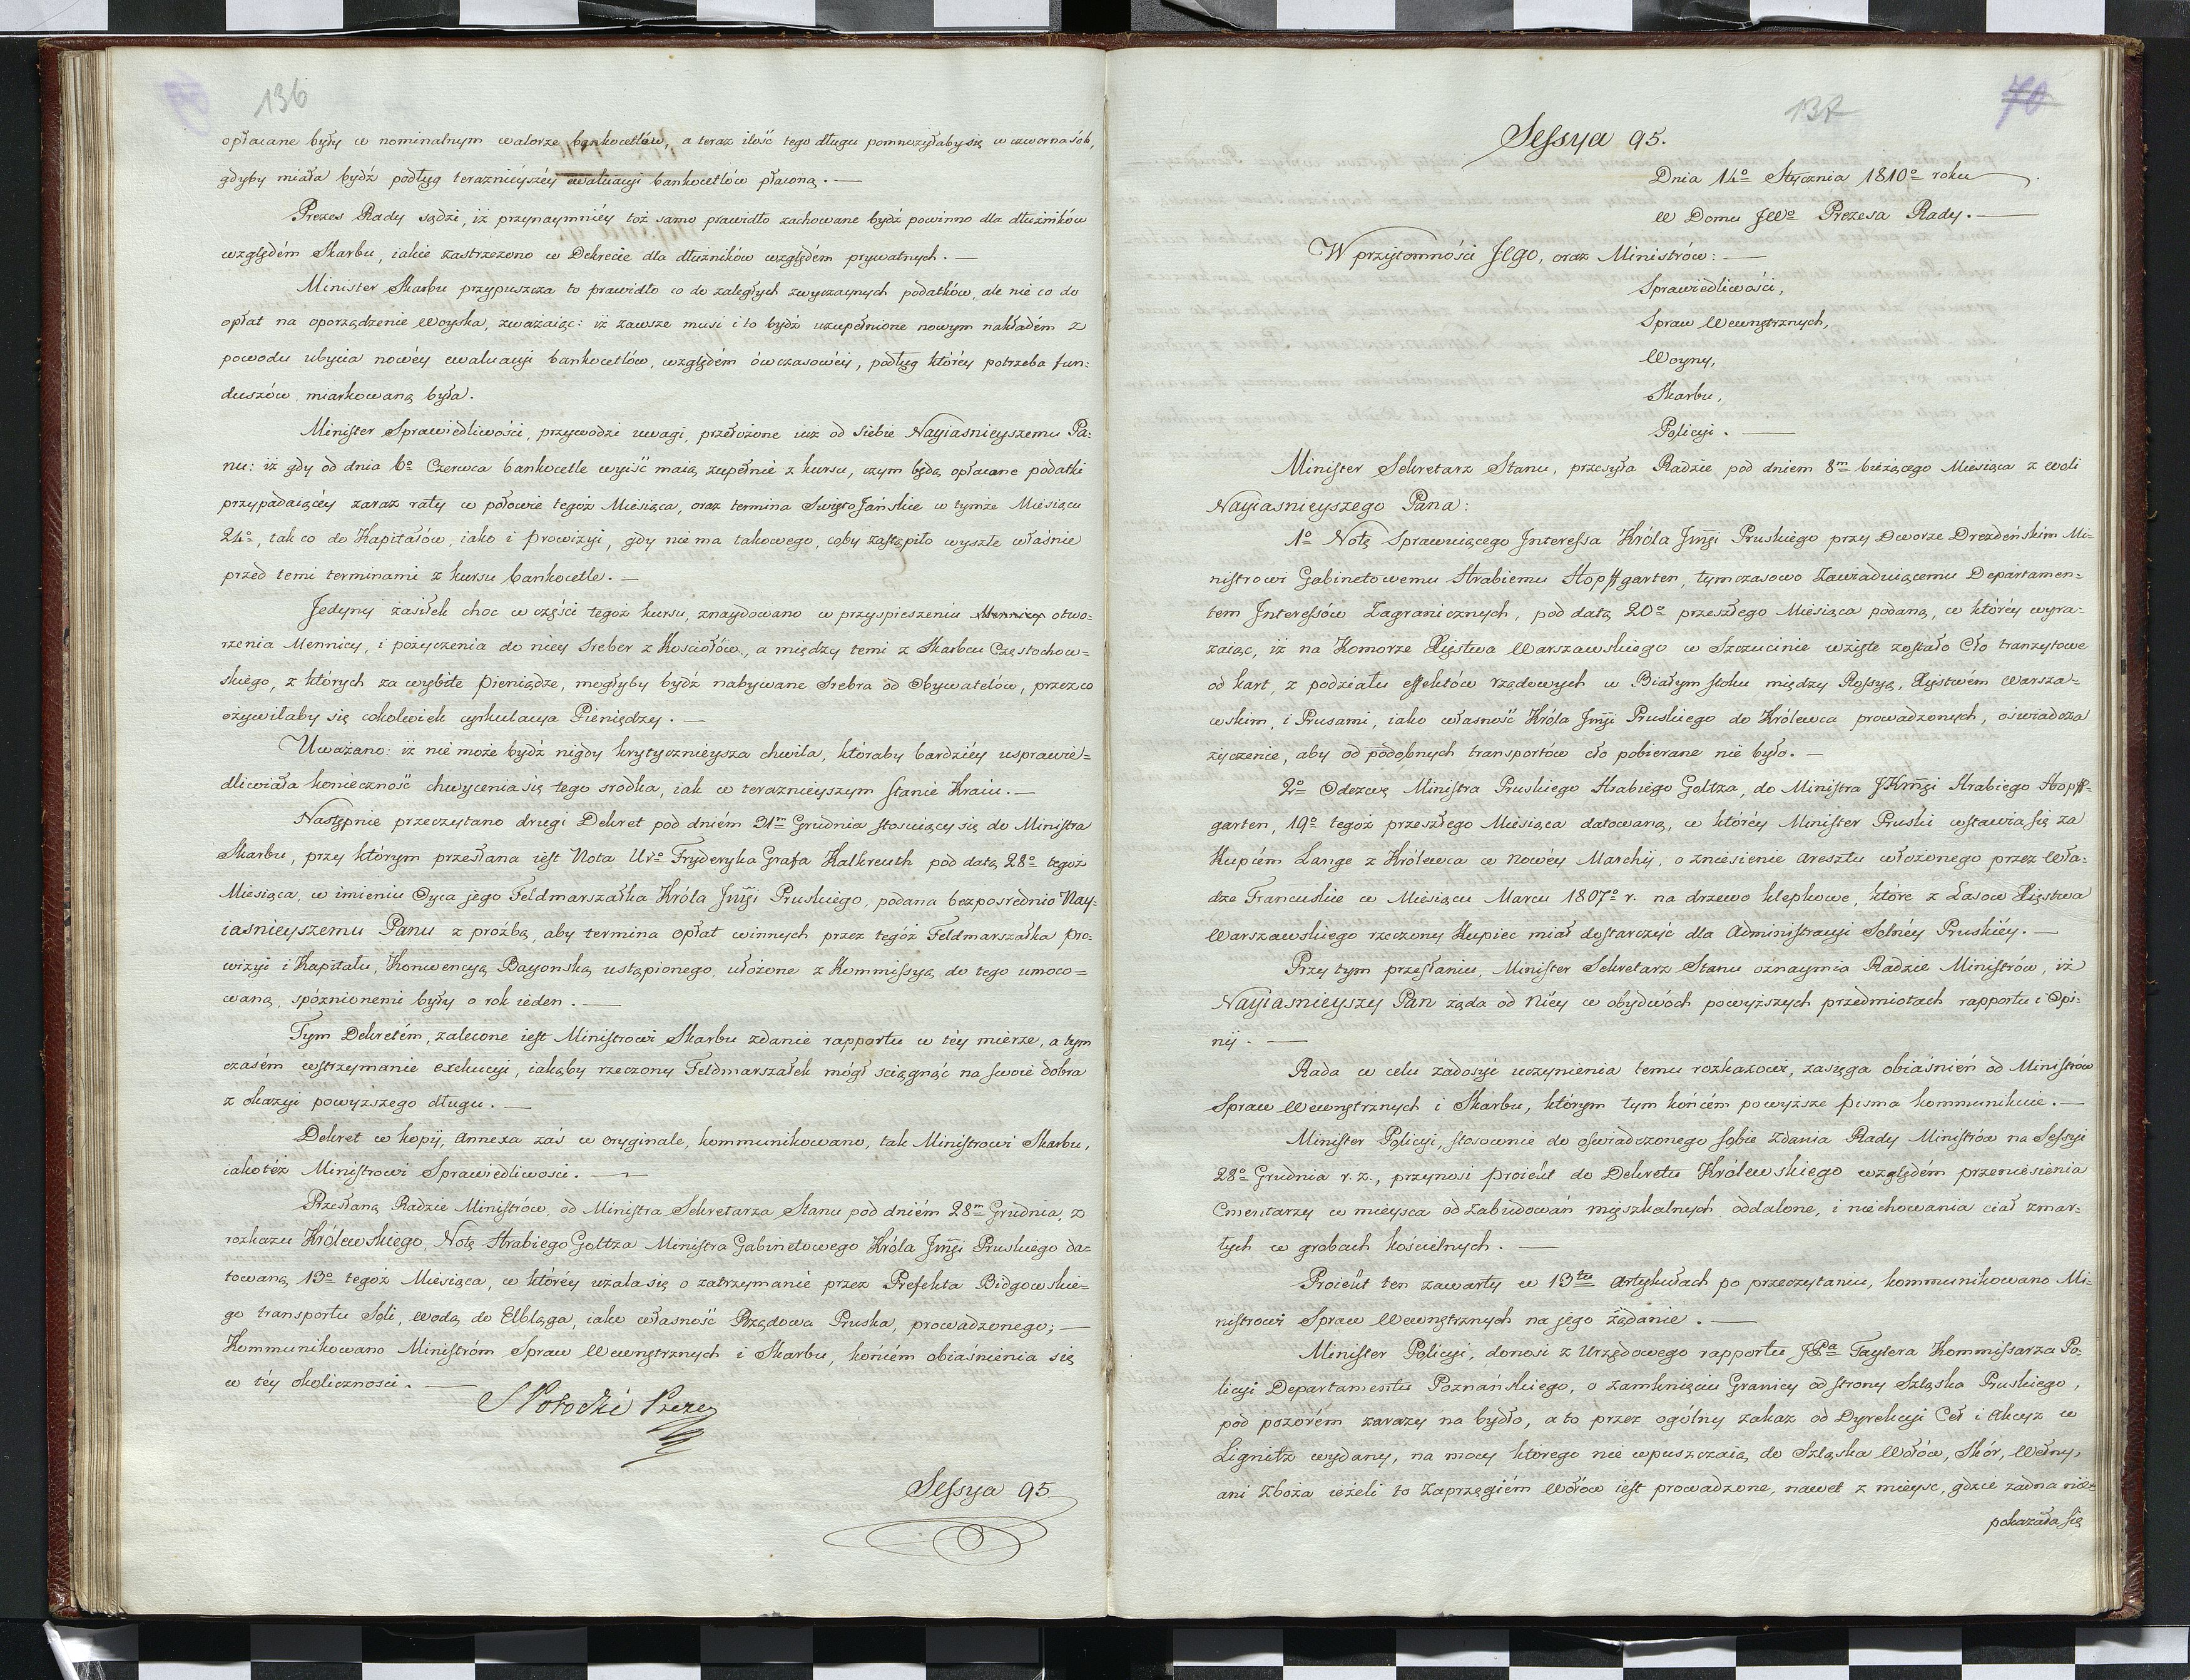 136
opłacane były w nominalnym walorze bankocetlów, a teraz ilość tego długu pomnożyłaby się w czwornasób,
gdyby miała bydź podług teraznieyszéy ewaluacyi bankocetlów płaconą. —
Prezes Rady sądzi, iż przynaymniéy toż samo prawidło zachowane bydź powinno dla dłużników
względém Skarbu, iakie zastrzeżono w Dekrecie dla dłużników względém prywatnych. —
Minister Skarbu przypuszcza to prawidło co do zaległych zwyczaynych podatków, ale nie co do
opłat na oporządzenie Woyska, zważaiąc: iż zawsze musi i to bydź uzupełnione nowym nakładém z
powodu ubycia nowéy ewaluacyi bankocetlów, względém ówczasowéy, podług któréy potrzeba fun:
duszów, miarkowaną była.
Minister Sprawiedliwości, przywodzi uwagi, przełożone iuż od siebie Nayiasnieyszemu Pa:
nu: iż gdy od dnia 6º Czerwca bankocetle wyiść maią zupełnie z kursu, czym będą opłacane podatki
przypadaiącéy zaraz raty w połowie tegoż Miesiąca, oraz termina Święto Jańskie w tymże Miesiącu
24º, tak co do Kapitałów, iako i Prowizyi, gdy nie ma takowego, coby zastąpiło wyszłe właśnie
przed temi terminami z kursu bankocetle. —
Jedyny zasiłek choc w części tegoż kursu, znaydowano w przyspieszeniu Mennicy otwo:
rzenia Mennicy, i pożyczenia do niey Sreber z Kościołów, a między temi z Skarbcu Częstochow=
skiego, z których za wybite pieniądze, mogłyby bydź nabywane Srebra od Obywatelów, przez co
ożywiłaby się cokolwiek cyrkulacya Pieniędzy. —
Uważano: iż nie może bydź nigdy krytycznieysza chwila, któraby bardziéy usprawie=
dliwiała konieczność chwycenia się tego srodka, iak w teraznieyszym Stanie Kraiu. —
Następnie przeczytano drugi Dekret pod dniém 31m Grudnia stosuiący się do Ministra
Skarbu, przy którym przesłana iest Nota Urº Fryderyka Grafa Kalkreuth pod datą 28º tegoż
Miesiąca, w imieniu Oyca jego Feldmarszałka Króla Jmći Pruskiego, podana bezpośrednio Nay=
iasnieyszemu Panu z prożbą, aby termina opłat winnych przez tegoż Feldmarszałka pro:
wizyi i Kapitału, Konwencyą Bayonską ustąpionego, ułożone z Kommissyą do tego umoco=
waną, spóznionemi były o rok ieden. —
Tym Dekretém, zalecone iest Ministrowi Skarbu zdanie rapportu w téy mierze, a tym
czasém wstrzymanie exekucyi, iakąby rzeczony Feldmarszałek mógł sciągnąć na swoie dobra
z okazyi powyższego długu. —
Dekret w kopij, Annexa zaś w oryginale, kommunikowano, tak Ministrowi Skarbu,
iakotéż Ministrowi Sprawiedliwosci. —
Przesłaną Radzie Ministrów, od Ministra Sekretarza Stanu pod dniém 28m Grudnia, z
rozkazu Królewskiego, Notę Hrabiego Goltza Ministra Gabinetowego Króla Jmći Pruskiego da=
towaną 13º tegoż Miesiąca, w któréy użala się o zatrzymanie przez Prefekta Bidgowskie=
go transportu Soli, wodą do Elbląga, iako własność Rządowa Pruska, prowadzonego; —
Kommunikowano Ministróm Spraw Wewnętrznych i Skarbu, końcém obiaśnienia się
w téy okolicznosci. —
S Potocki Prezes
Sessya 95
137
70
Sessya 95.
Dnia 14º Stycznia 1810º roku
W Domu JWº Prezesa Rady. —
W przytomności JEgo, oraz Ministrów: —
Sprawiedliwości,
Spraw Wewnętrznych,
Woyny,
Skarbu,
Policyi. —
Minister Sekretarz Stanu, przesyła Radzie pod dniem 8m bieżącego Miesiąca z woli
Nayiasnieyszego Pana:
1º Notę Sprawuiącego Interessa Króla Jmći Pruskiego przy Dworze Drezdeńskim Mi=
nistrowi Gabinetowemu Hrabiemu Hopffgarten, tymczasowo Zawiaduiącemu Departamen=
tem Interessów Zagranicznych, pod datą 20º przeszłego Miesiąca podaną, w któréy wyra=
żaiąc, iż na Komorze Xięstwa Warszawskiego w Szczucinie wzięte zostało Cło tranzytowe
od kart, z podziału effektów rządowych w Białym stoku między Rossyą, Xięstwém Warsza=
wskim, i Prusami, iako własność Króla Jmći Pruskiego do Królewca prowadzonych, oświadcza
życzenie, aby od podobnych transportów cło pobierane nie było. —
2º Odezwę Ministra Pruskiego Hrabiego Goltza, do Ministra JKmći Hrabiego Hopff=
garten, 19º tegoż przeszłego Miesiąca datowaną, w któréy Minister Pruski wstawia się za
Kupcém Lange z Królewca w Nowéy Marchij, o zniesienie aresztu włożonego przez Wła=
dze Francuskie w Miesiącu Marcu 1807º r. na drzewo klepkowe, które z Lasow Xięstwa
Warszawskiego rzeczony Kupiec miał dostarczyć dla Administracyi Solnéy Pruskiéy. —
Przy tym przesłaniu, Minister Sekretarz Stanu oznaymia Radzie Ministrów, iż
Nayiasnieyszy Pan żąda od Niéy w obydwóch powyższych przedmiotach rapportu i Opi=
nij. —
Rada w celu zadosyć uczynienia temu rozkazowi, zasięga obiaśnień od Ministrów
Spraw Wewnętrznych i Skarbu, którym tym końcém powyższe pisma kommunikuie. —
Minister Policyi, stosownie do oświadczonego sobie Zdania Rady Ministrów na Sessyi
28º Grudnia r. z., przynosi proiekt do Dekretu Królewskiego względém przeniesienia
Cmentarzy w mieysca od Zabudowań mięszkalnych oddalone, i niechowania ciał zmar=
łych w grobach kościelnych. —
Proiekt ten zawarty w 13tu artykułach po przeczytaniu, kommunikowano Mi=
nistrowi Spraw Wewnętrznych na jego żądanie. —
Minister Policyi, donosi z Urzędowego rapportu JPa Faytera Kommissarza Po=
licyi Departamentu Poznańskiego, o zamknięciu Granicy od strony Szląska Pruskiego,
pod pozorém zarazy na bydło, a to przez ogólny zakaz od Dyrekcyi Ceł i Akcyz w
Lignitz wydany, na mocy którego nie wpuszczaią do Szląska Wołów, Skór, Wełny,
ani Zboża ieżeli to Zaprzęgiém Wołów iest prowadzone, nawet z mieysc, gdzie żadna nie
pokazała się